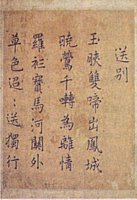 送别
玉映雙啼出鳳城
曉鶯千轉為離情
羅衫寶馬河關外
草色迢〻送獨行